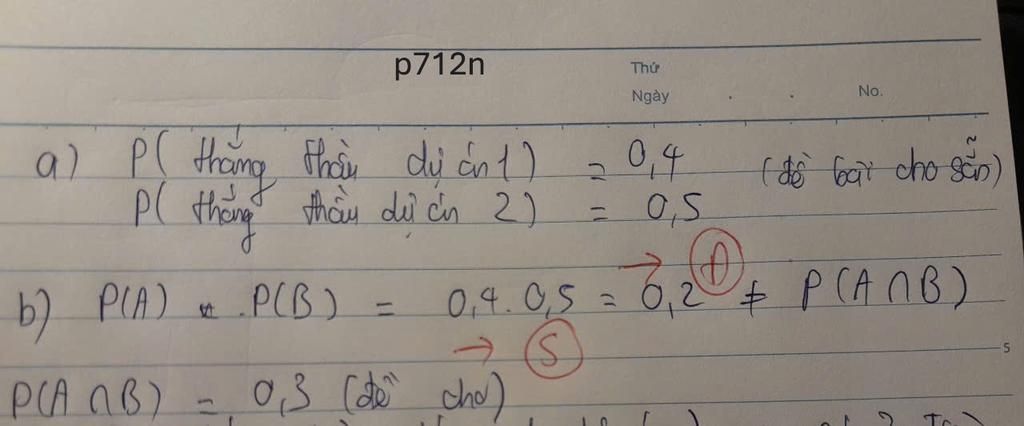 p712n
Thứ
Ngày . . No.
a) P( thắng thầu dự án 1) = 0,4 (đề bài cho sẵn)
P( thắng thầu dự án 2) = 0,5
b) P(A) . P(B) = 0,4 . 0,5 = 0,2 ≠ P(A ∩ B)
→ Đ
→ S
5
P(A ∩ B) = 0,3 (đề cho)